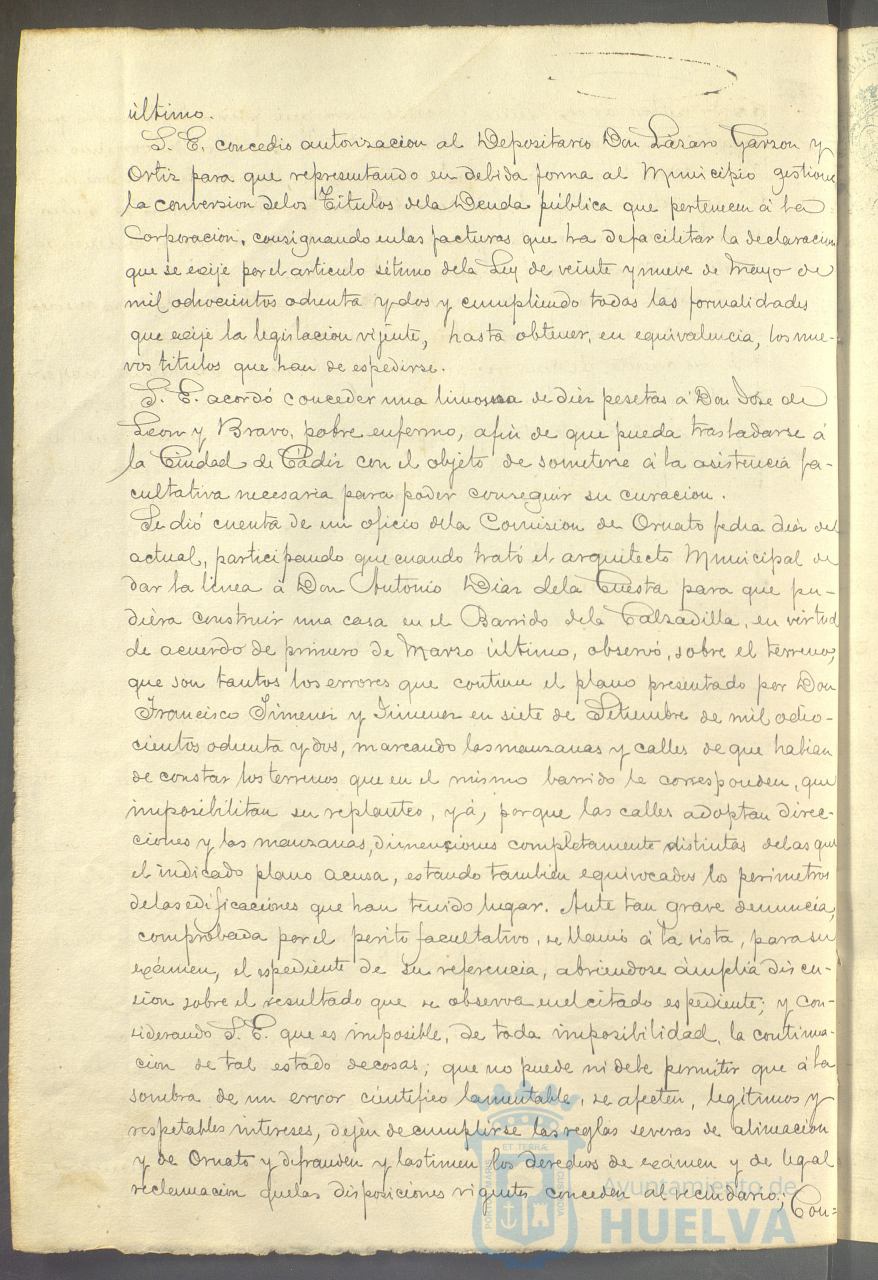 último.
S. E. concedio autorizacion al Depositario Don Lázaro Garzon y
Ortiz para que representando en debida forma al Municipio gestione
la conversion delos Titulos dela Deuda pública que pertenecen á la
Corporacion, consignando enlas facturas que ha defacilitar la declaracion
que se exije por el articulo sétimo dela Ley de veinte ynueve de Mayo de
mil ochocientos ochenta ydos y cumpliendo todas las formalidades
que exije la legislacion vijente, hasta obtener, en equivalencia, los nue-
vos titulos que han de espedirse.
S. E. acordó conceder una limosna de diez pesetas á Don José de
Leon y Bravo, pobre enfermo, afin de que pueda trasladarse á
la Ciudad de Cádiz con el objeto de someterse á la asistencia fa-
cultativa necesaria para poder conseguir su curacion.
Se dió cuenta de un oficio dela Comision de Ornato fecha diez del
actual, participando que cuando trató el arquitecto Municipal de
dar la linea á Don Antonio Diaz dela Cuesta para que pu-
diera construir una casa en el Barrido dela Calzadilla, en virtud
de acuerdo de primero de Marzo último, observó, sobre el terreno,
que son tantos los errores que contiene el plano presentado por Don
Francisco Jimenez y Jimenez en siete de Setiembre de mil ocho-
cientos ochenta ydos, marcando las manzanas y calles de que habian
de constar los terrenos que en el mismo barrido le corresponden, que
imposibilitan su replanteo, yá, porque las calles adoptan direc-
ciones y las manzanas, dimenciones completamente distintas delas que
el indicado plano acusa, estando tambien equivocados los perimetros
delas edificaciones que han tenido lugar. Ante tan grave denuncia,
comprobada por el perito facultativo, se llamó á la vista, para su
exámen, el espediente de su referencia, abriendose ámplia discu-
sion sobre el resultado que se observa enel citado espediente; y con-
siderando S. E. que es imposible, de toda imposibilidad, la continua-
cion de tal estado decosas; que no puede ni debe permitir que á la
sombra de un error cientifico lamentable, se afecten, legitimos y
respetables intereses, dejen decumplirse las reglas severas de alineacion
y de Ornato y defrauden y lastimen los derechos de exámen y de legal
reclamacion quelas disposiciones vigentes conceden al vecindario; Con-
Ayuntamiento de
HUELVA